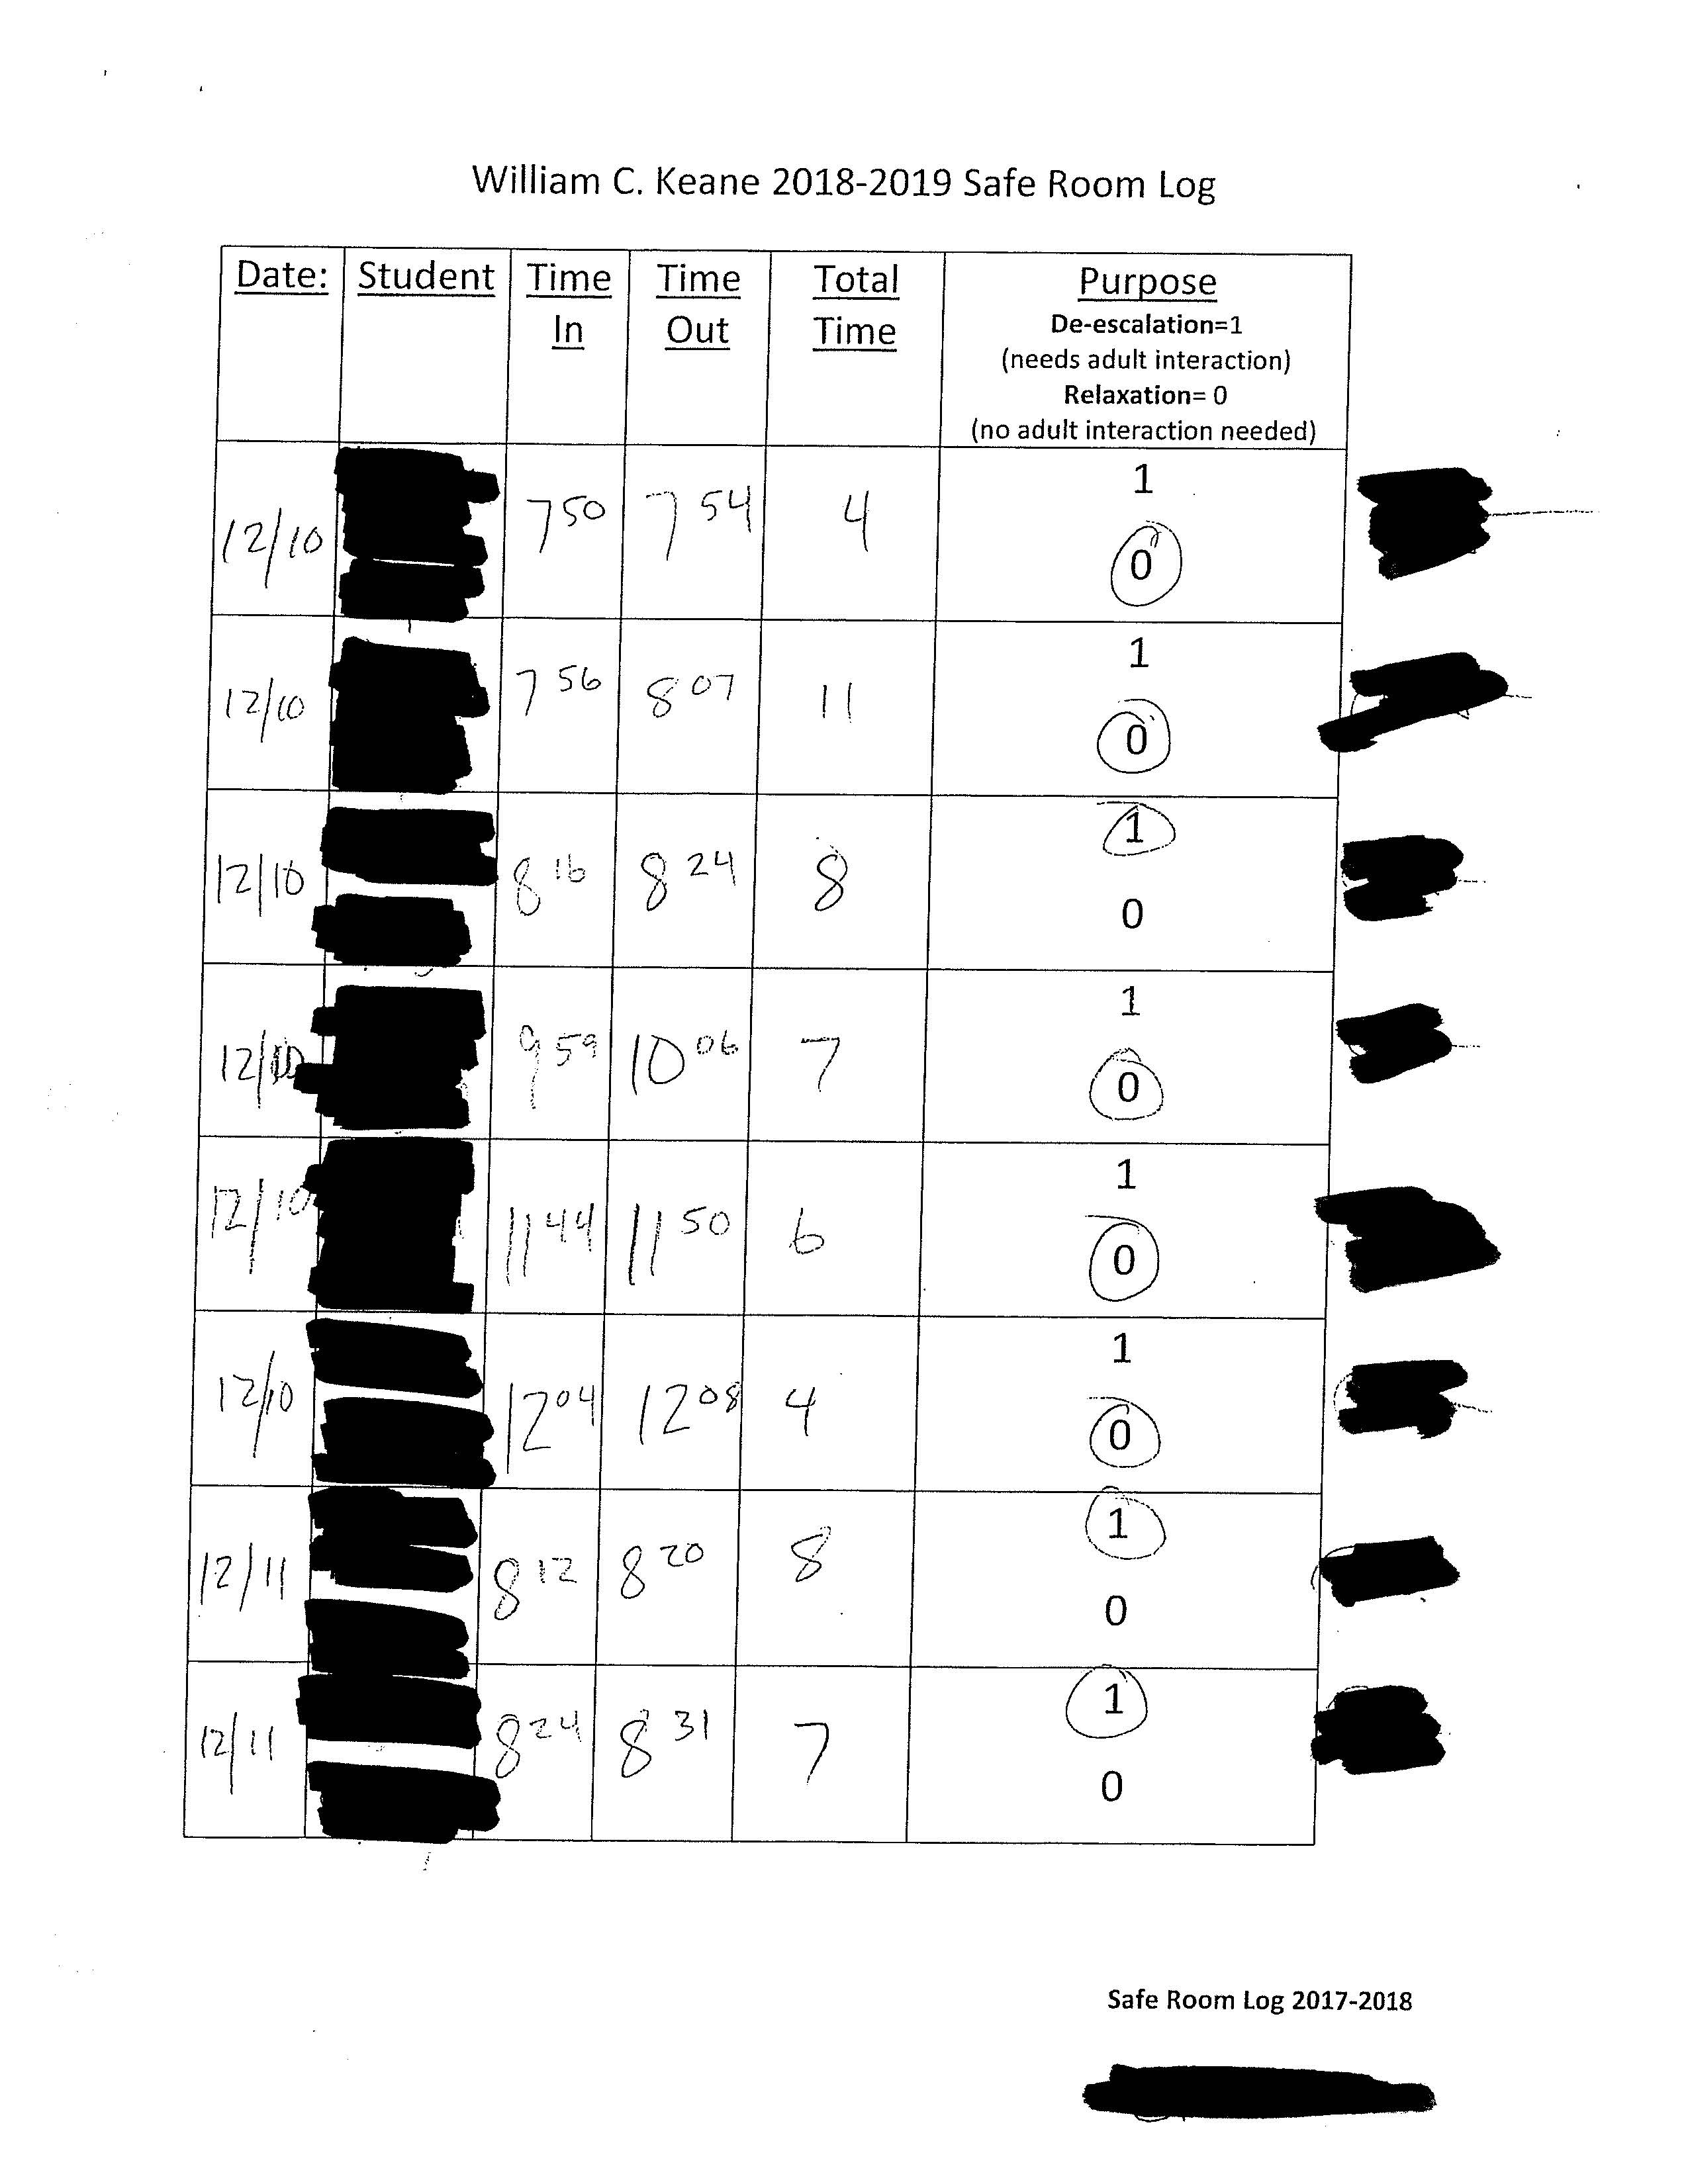 William C. Keane 2018-2019 Safe Room Log
Date: Student Time In Time Out Total Time Purpose
De-escalation=1
(needs adult interaction)
Relaxation= 0
(no adult interaction needed)
12/10 7 50 7 54 4 1 0
12/10 7 56 8 07 11 1 0
12/10 8 16 8 24 8 1 0
12/10 9 59 10 06 7 1 0
12/10 11 44 11 50 6 1 0
12/10 12 04 12 08 4 1 0
12/11 8 12 8 20 8 1 0
12/11 8 24 8 31 7 1 0
Safe Room Log 2017-2018